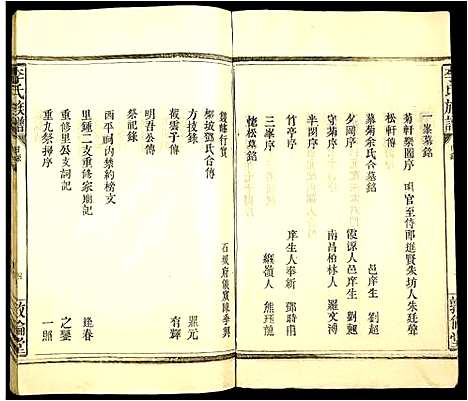 一峯墓銘
菊軒樂圃序 官至侍郎進賢朱坊人朱廷聲
松軒傳
墓菊余氏合墓銘 邑庠生 劉超
夕岡序 霞源人邑庠生 劉魁
守菊序 南昌柏林人 羅文溥
半閒序
竹亭序 庠生人奉新 鄧時甫
三峯序
憁松墓銘 嶺人 熊
錢峰行實 石城府儀賓陳季興
柳坡鄧氏合傳
方技錄 羅元
截雲子傳 有輝
明吾公傳
祭祀錄
西平祠內禁約榜文
里鍾二支重修家廟記 逢春
重修里公支祠記 之鑾
重九祭掃序 一照
李氏族譜
敦倫堂